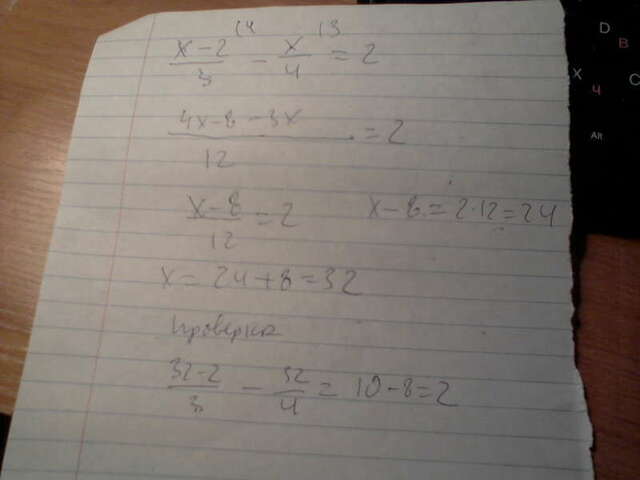 x-2/3 (4 - x/4 (3 = 2
4x-8-3x/12 = 2
x-8/12 = 2 x-8=2·12=24
x=24+8=32
Проверка
32-2/3 - 32/4 = 10-8=2
D
В
X
Ч
C
Alt